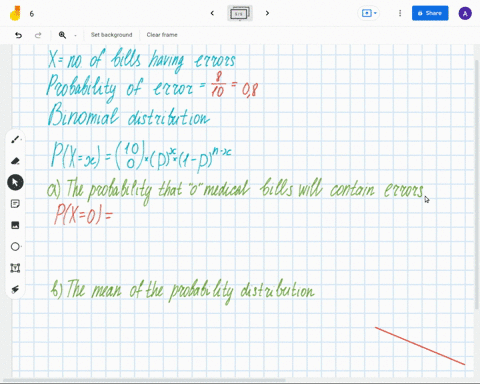 6
3/3
Share
A
Set background
Clear frame
X = no of bills having errors
Probability of error = 8/10 = 0,8
Binomial distribution
P(X=x) = (10 0) * (p)^x * (1-p)^n-x
a) The probability that "0" medical bills will contain errors.
P(X=0) =
b) The mean of the probability distribution